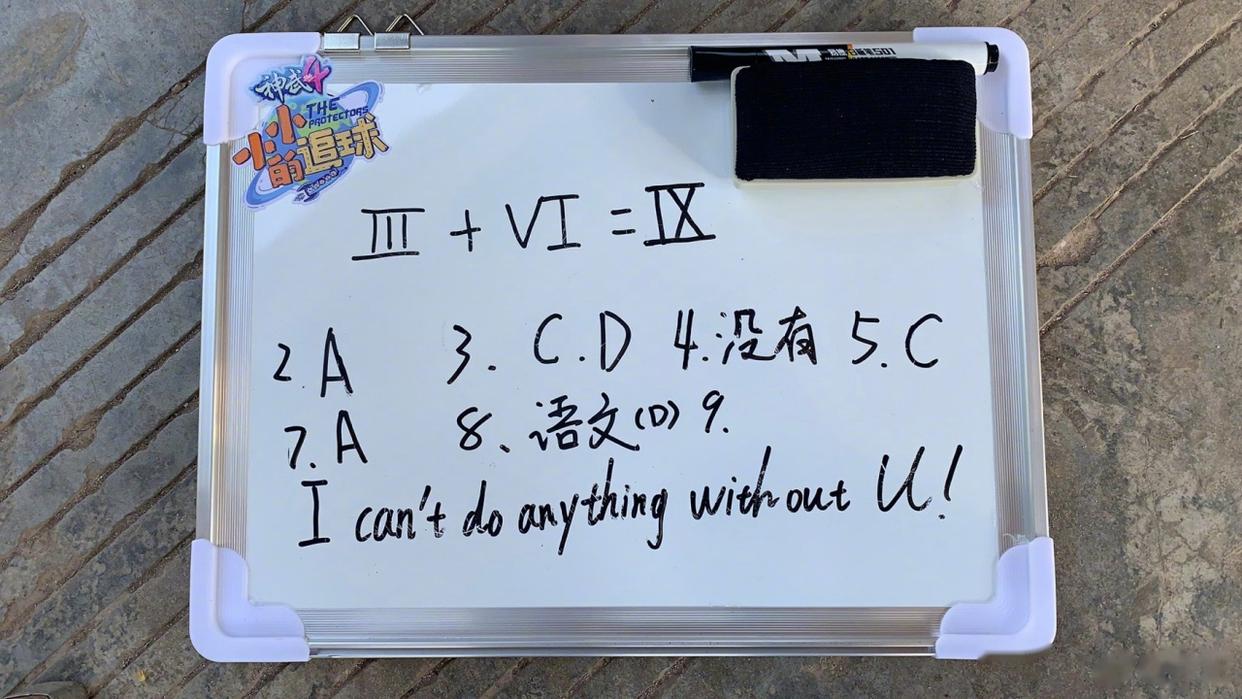 神武4
THE
PROTECTORS
小小的追球
501
III + VI = IX
2. A 3. C.D 4.没有 5. C
7. A 8、语文(D) 9.
I can't do anything without U!